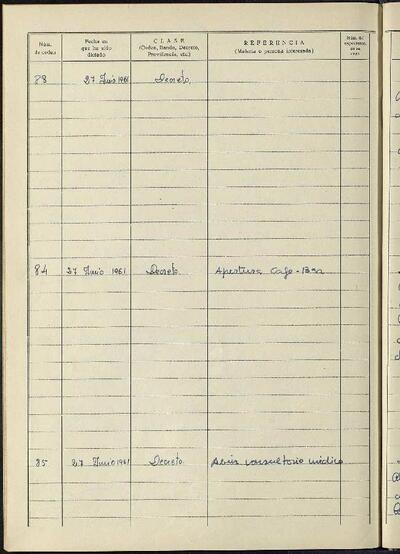 Núm. de orden
Fecha en que ha sido dictado
CLASE (Orden, Bando, Decreto, Providencia, etc.)
REFERENCIA (Materia o persona interesada)
83 27 Junio 1961 Decreto.
84 27 Junio 1961 Decreto. Apertura Cafe-Bar
85 27 Junio 1961 Decreto. Abrir consultorio médico